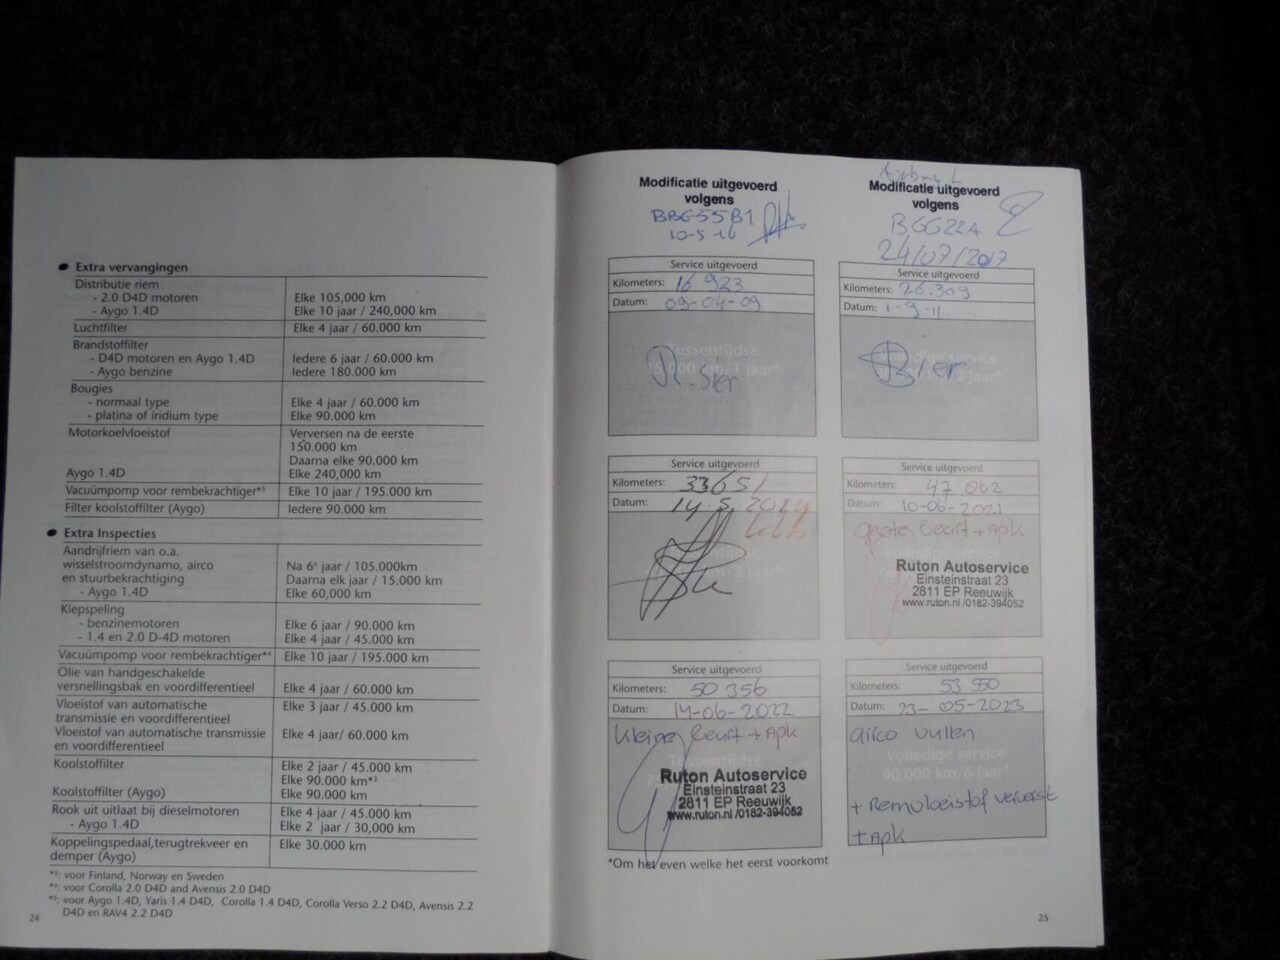 ● Extra vervangingen
Distributie riem
- 2.0 D4D motoren Elke 105,000 km
- Aygo 1.4D Elke 10 jaar / 240,000 km
Luchtfilter Elke 4 jaar / 60.000 km
Brandstoffilter
- D4D motoren en Aygo 1.4D Iedere 6 jaar / 60.000 km
- Aygo benzine Iedere 180.000 km
Bougies
- normaal type Elke 4 jaar / 60.000 km
- platina of iridium type Elke 90.000 km
Motorkoelvloeistof Verversen na de eerste
150.000 km
Daarna elke 90.000 km
Aygo 1.4D Elke 240,000 km
Vacuümpomp voor rembekrachtiger*⁵ Elke 10 jaar / 195.000 km
Filter koolstoffilter (Aygo) Iedere 90.000 km
● Extra Inspecties
Aandrijfriem van o.a.
wisselstroomdynamo, airco Na 6ᵉ jaar / 105.000km
en stuurbekrachtiging Daarna elk jaar / 15.000 km
- Aygo 1.4D Elke 60,000 km
Klepspeling
- benzinemotoren Elke 6 jaar / 90.000 km
- 1.4 en 2.0 D-4D motoren Elke 4 jaar / 45.000 km
Vacuümpomp voor rembekrachtiger*⁴ Elke 10 jaar / 195.000 km
Olie van handgeschakelde
versnellingsbak en voordifferentieel Elke 4 jaar / 60.000 km
Vloeistof van automatische Elke 3 jaar / 45.000 km
transmissie en voordifferentieel
Vloeistof van automatische transmissie Elke 4 jaar/ 60.000 km
en voordifferentieel
Koolstoffilter Elke 2 jaar / 45.000 km
Elke 90.000 km*³
Koolstoffilter (Aygo) Elke 90.000 km
Rook uit uitlaat bij dieselmotoren Elke 4 jaar / 45.000 km
- Aygo 1.4D Elke 2 jaar / 30,000 km
Koppelingspedaal,terugtrekveer en Elke 30.000 km
demper (Aygo)
*³: voor Finland, Norway en Sweden
*⁴: voor Corolla 2.0 D4D and Avensis 2.0 D4D
*⁵: voor Aygo 1.4D, Yaris 1.4 D4D, Corolla 1.4 D4D, Corolla Verso 2.2 D4D, Avensis 2.2
D4D en RAV4 2.2 D4D
24
Modificatie uitgevoerd
volgens
BBG55B1
10-5-16
Service uitgevoerd
Kilometers: 16 923
Datum: 09-04-09
Tussentijdse
15.000 km/1 jaar*
R. Sier
Modificatie uitgevoerd
volgens
BGG22A
24/07/2017
Service uitgevoerd
Kilometers: 26.309
Datum: 1-9-11
Volledige service
Service uitgevoerd
Kilometers: 33651
Datum: 14.5.
Service uitgevoerd
Kilometers: 47 062
Datum: 10-06-2021
grote beurt + Apk
Ruton Autoservice
Einsteinstraat 23
2811 EP Reeuwijk
www.ruton.nl /0182-394052
Service uitgevoerd
Kilometers: 50 356
Datum: 14-06-2022
Kleine beurt + Apk
Tussentijdse
Ruton Autoservice
Einsteinstraat 23
2811 EP Reeuwijk
www.ruton.nl /0182-394052
Service uitgevoerd
Kilometers: 53 550
Datum: 23-05-2023
airco vullen
Volledige service
90.000 km/6 jaar*
+ Remvloeistof ververst
+ Apk
*Om het even welke het eerst voorkomt
25